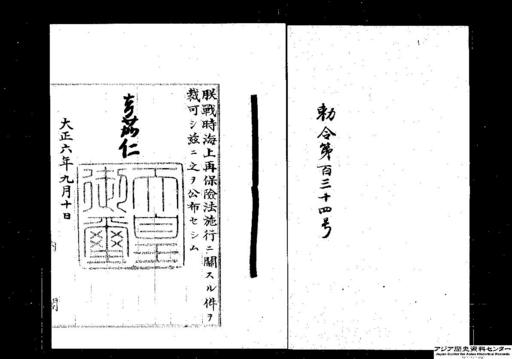 勅令第百三十四号
朕戦時海上再保険法施行ニ関スル件ヲ
裁可シ茲ニ之ヲ公布セシム
嘉仁
天皇
御璽
大正六年九月十日
内閣
アジア歴史資料センター
Japan Center for Asian Historical Records